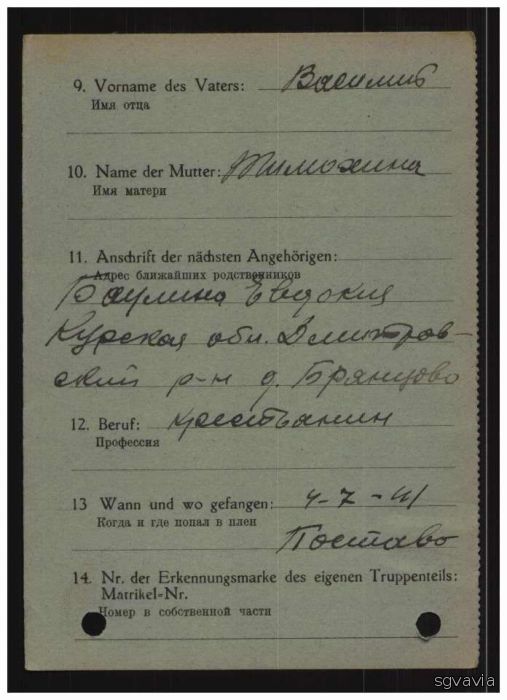 9. Vorname des Vaters: Василий
Имя отца
10. Name der Mutter: Тимохина
Имя матери
11. Anschrift der nächsten Angehörigen:
Адрес ближайших родственников
Баулина Евдокия
Курская обл. Дмитров-
ский р-н д. Брянцово
12. Beruf: крестьянин
Профессия
13 Wann und wo gefangen: 4-7-41
Когда и где попал в плен
Поставо
14. Nr. der Erkennungsmarke des eigenen Truppenteils:
Matrikel=Nr.
Номер в собственной части
sgvavia